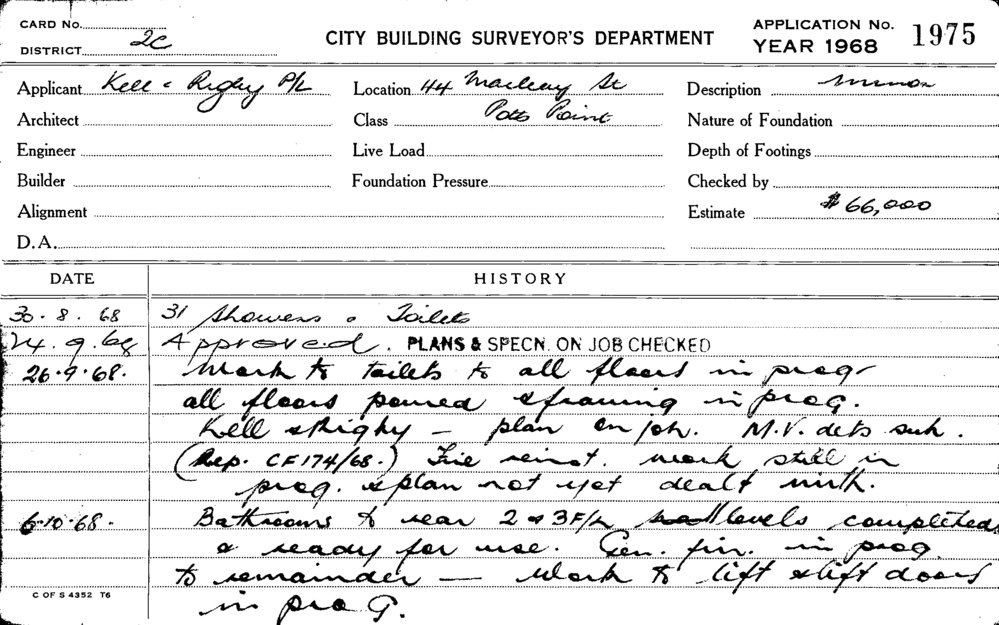 CARD No.
DISTRICT 2C
CITY BUILDING SURVEYOR'S DEPARTMENT
APPLICATION No. 1975
YEAR 1968
Applicant Kell & Rigby P/L
Location 44 Macleay St
Description Minor
Architect
Class Potts Point
Nature of Foundation
Engineer
Live Load
Depth of Footings
Builder
Foundation Pressure
Checked by
Alignment
Estimate $66,000
D.A.
DATE HISTORY
30.8.68 31 Showers & Toilets
24.9.68 Approved. PLANS & SPECN. ON JOB CHECKED
26.9.68. Work to toilets to all floors in prog.
all floors poured & framing in prog.
Kell & Rigby — plan on job. M.V. dets sub.
(Rep. CF174/68.) Fire resist. work still in
prog. & plan not yet dealt with.
6.10.68. Bathrooms to rear 2 & 3 F/L levels completed
& ready for use. Gen. fin. in prog
to remainder — Work to lift & lift doors
in prog.
C OF S 4352 T6